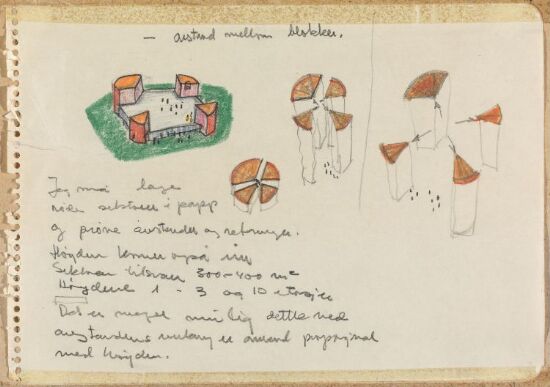 — avstand mellom blokker.
Jeg må lage
røde sektorer i papp
og prøve avstander og retninger.
Høyden kommer også inn
Sektoren tilsvarer 300-400 m²
Høydene 1 - 3 og 10 etasjer
Det er meget mulig dette med
avstandens er omvend proporsjonal
med høyden.